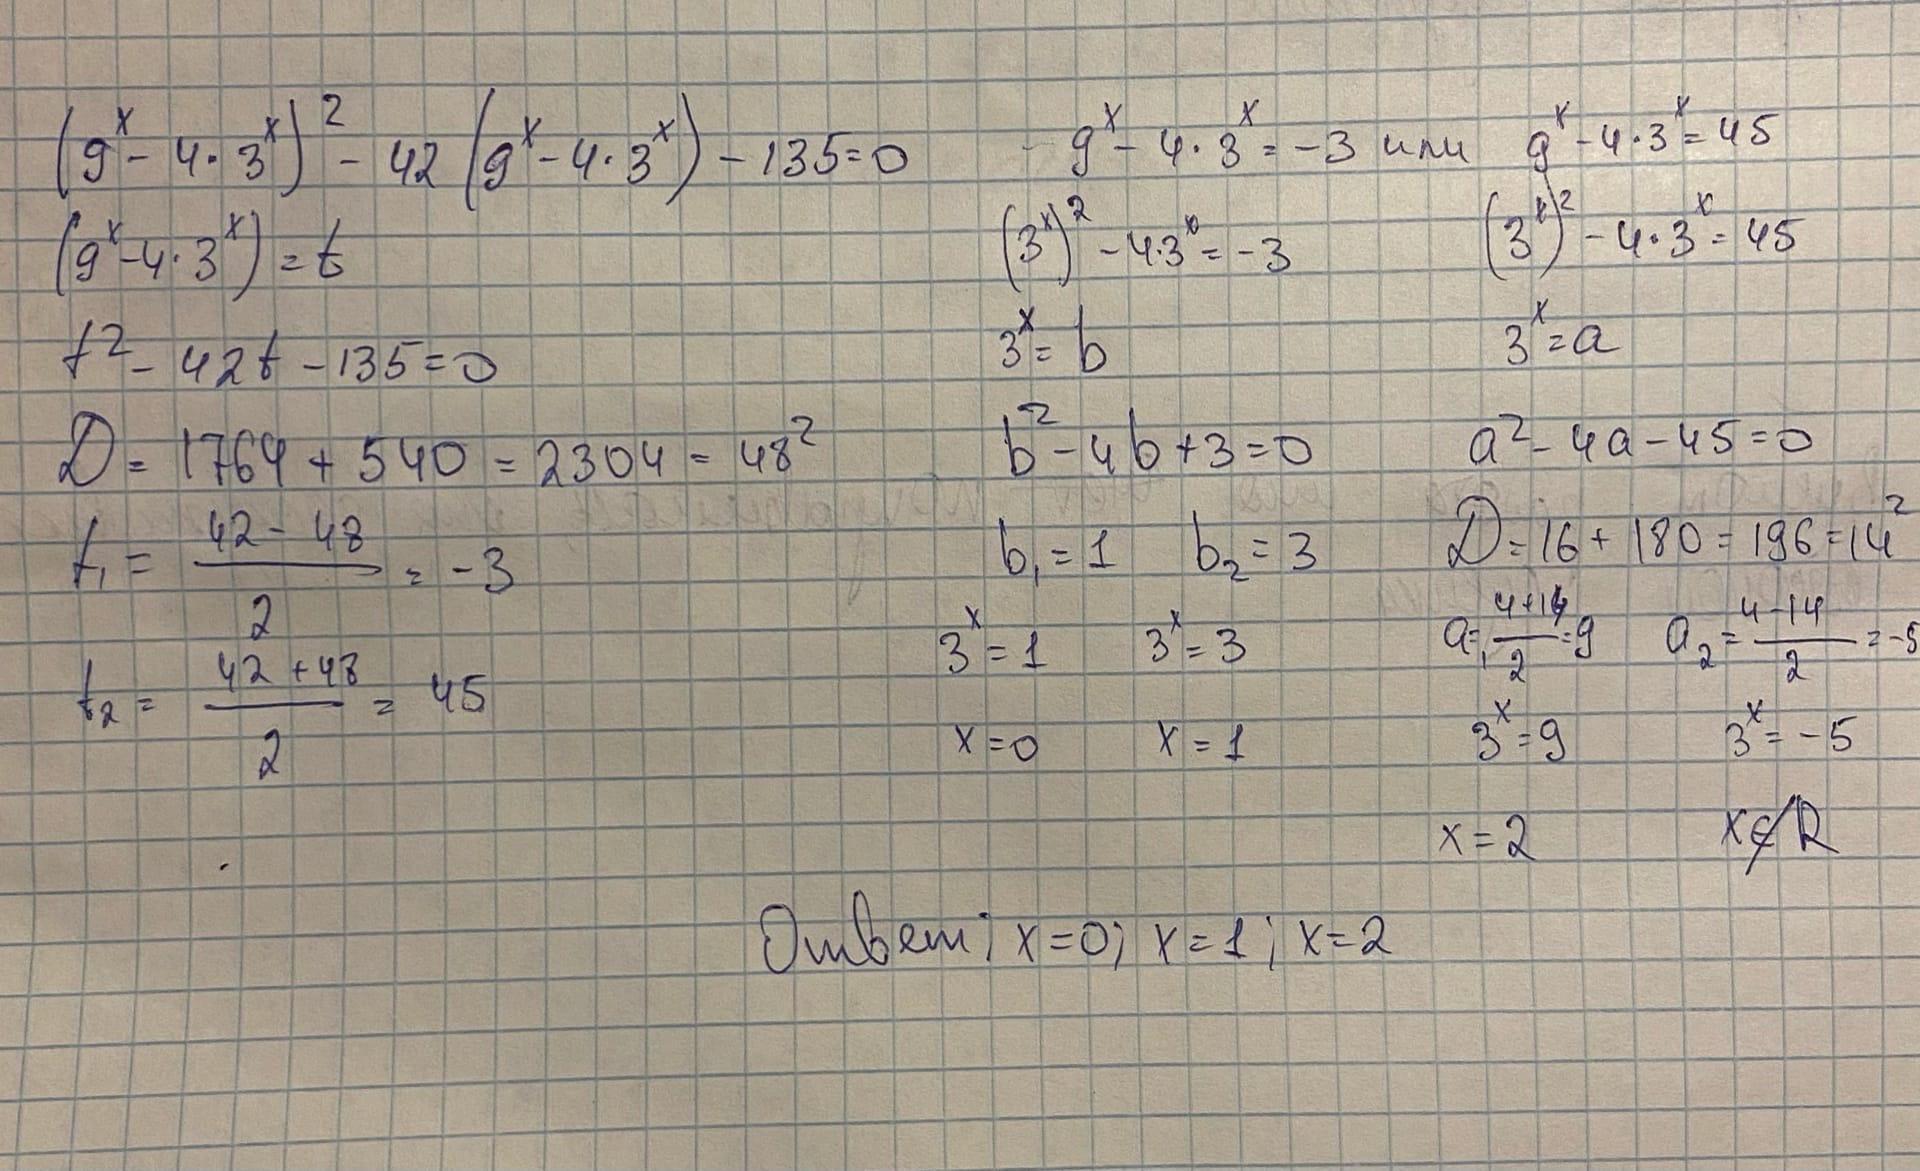 (9^x - 4·3^x)^2 - 42(9^x - 4·3^x) - 135 = 0
(9^x - 4·3^x) = t
t^2 - 42t - 135 = 0
D = 1764 + 540 = 2304 = 48^2
t_1 = (42 - 48)/2 = -3
t_2 = (42 + 48)/2 = 45
9^x - 4·3^x = -3 или 9^x - 4·3^x = 45
(3^x)^2 - 4·3^x = -3
3^x = b
b^2 - 4b + 3 = 0
b_1 = 1 b_2 = 3
3^x = 1 3^x = 3
x = 0 x = 1
(3^x)^2 - 4·3^x = 45
3^x = a
a^2 - 4a - 45 = 0
D = 16 + 180 = 196 = 14^2
a_1 = (4+14)/2 = 9 a_2 = (4-14)/2 = -5
3^x = 9 3^x = -5
x = 2 x ∉ R
Ответ: x = 0; x = 1; x = 2